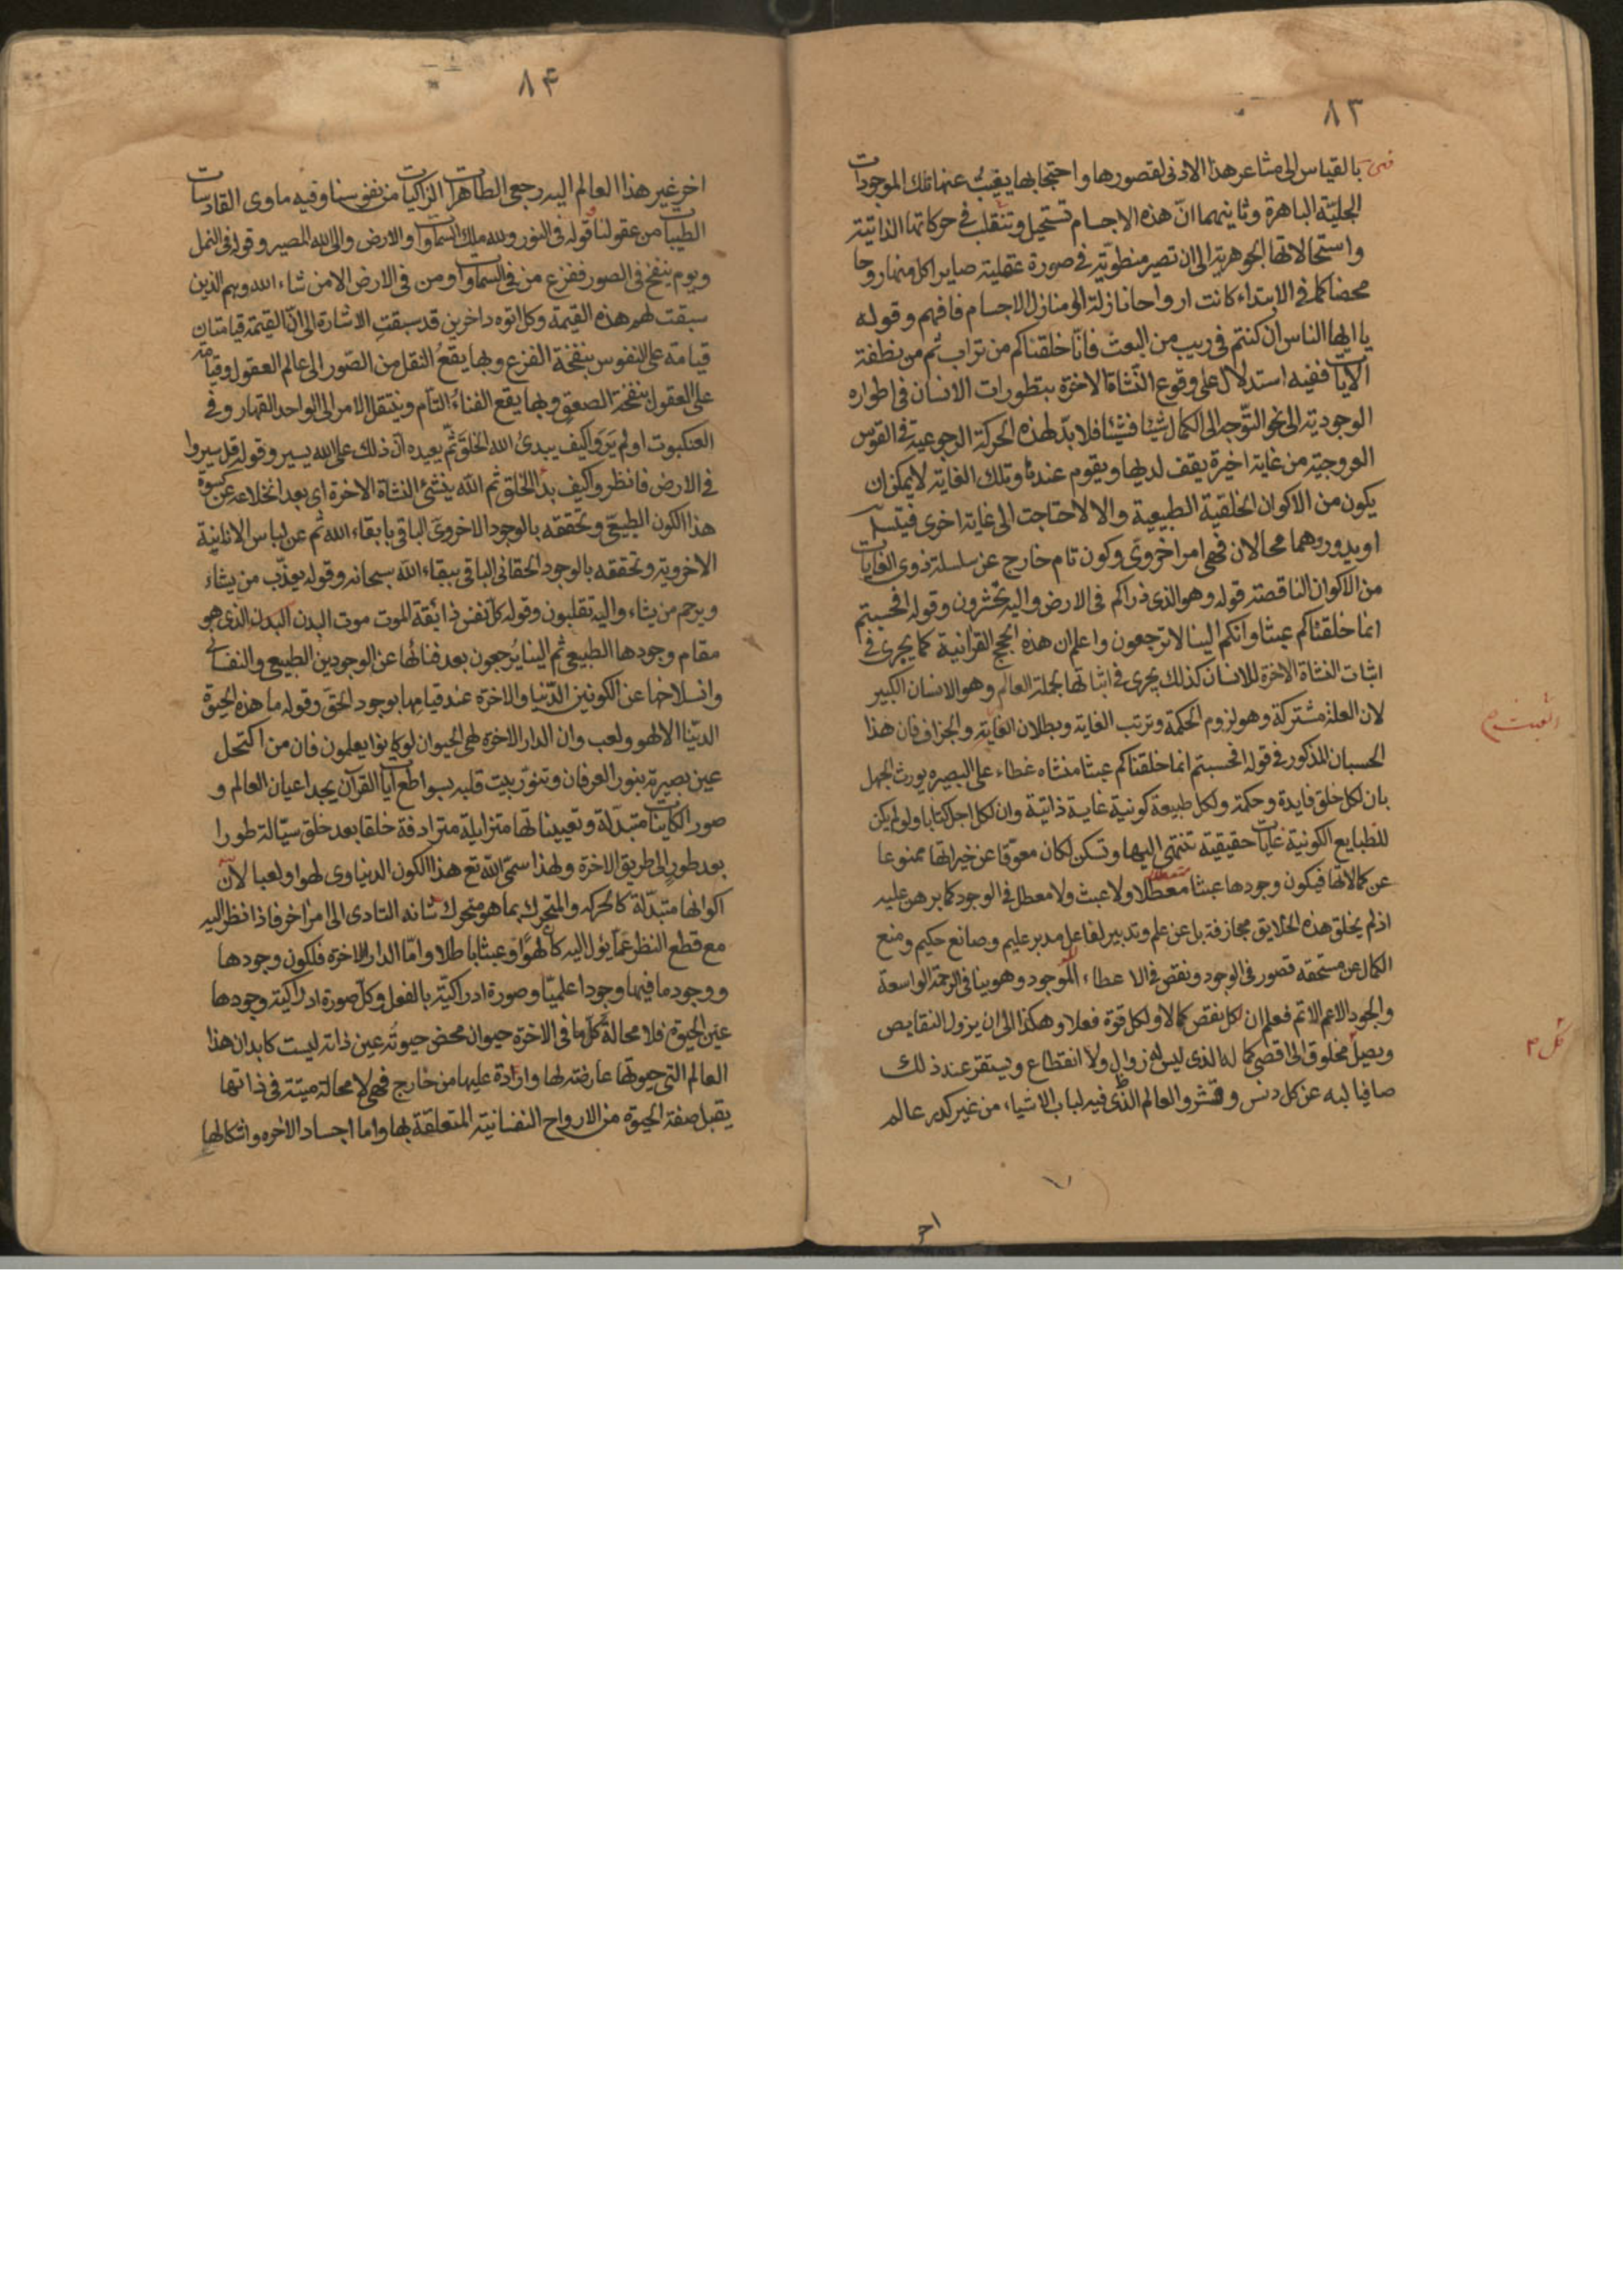 ٨٣
بالقياس الى مشاعر هذا الادنى لقصورها واحتجابها يغيب عنها تلك الموجودات
الجليّة الباهرة وثانيهما انّ هذه الاجسام تستحيل وتنقلب فى حركاتها الذاتية
واستحالاتها الجوهرية الى ان تصير منطوية فى صورة عقلية صايرا كل منها روحا
محضا كما فى الابتداء كانت ارواحا نازلة الى منازل الاجسام فافهم وقوله
يا ايها الناس ان كنتم فى ريب من البعث فانّا خلقناكم من تراب ثم من نطفة
الآيات ففيه استدلال على وقوع النشاة الاخرة بتطورات الانسان فى اطواره
الوجودية الى نحو التوّجه الى الكمال شيئا فشيئا فلابدّ لهذه الحركة الرجوعية فى القوس
العروجية من غاية اخيرة يقف لديها ويقوم عندها وتلك الغاية لا يمكن ان
يكون من الاكوان الخلقية الطبيعية والا لاحتاجت الى غاية اخرى فيتسلسل
او يدور وهما محالان فهى امر اخروىّ وكون تام خارج عن سلسلة ذوى الغايات
من الاكوان الناقصة قوله وهو الذى ذراكم فى الارض واليه تحشرون وقوله افحسبتم
انما خلقناكم عبثا وانكم الينا لا ترجعون واعلم ان هذه الحجج القرانية كما يجرى فى
اثبات النشاة الاخرة للانسان كذلك يجرى فى اثباتها لجملة العالم وهو الانسان الكبير
لان العلة مشتركة وهو لزوم الحكمة وترتب الغاية وبطلان الغاية والجزاف فان هذا
العبث م
الحسبان المذكور فى قوله افحسبتم انما خلقناكم عبثا منشاه غطاء على البصيره يورث الجهل
بان لكل خلق فايدة وحكمة ولكل طبيعة كونية غاية ذاتية وان لكل اجل كتابا ولو لم يكن
للطبايع الكونية غايات حقيقية تنتهى اليها وتسكن لكان معوّقا عن خيراتها ممنوعا
عن كمالاتها فيكون وجودها عبثا معطلا ولا عبث ولا معطل فى الوجود كما برهن عليه
اذ لم يخلق هذه الخلايق مجازفة بل عن علم وتدبير لفاعل مدبر عليم وصانع حكيم ومنع
الكمال عن مستحقه قصور فى الوجود ونقص فى الاعطاء الموجود وهو ينافى الرحمة الواسعة
والجود الاعم الاتم فعلم ان لكل نقص كمالا ولكل قوة فعلا وهكذا الى ان يزول النقايص
كل م
ويصل مخلوق الى اقصى كماله الذى ليس له زوال ولا انقطاع ويستقر عند ذلك
صافيا لبه عن كل دنس وقشر والعالم الذى فيه لباب الاشياء من غير كدر عالم
اخر
٨۴
اخر غير هذا العالم اليه رجعى الطاهرات الزاكيات من نفوسنا وفيه ماوى القادسات
الطيبات من عقولنا قوله فى النور ولله ملك السماوات والارض والى الله المصير وقوله فى النمل
ويوم ينفخ فى الصور ففزع من فى السماوات ومن فى الارض الا من شاء الله وهم الذين
سبقت لهم هذه القيمة وكل اتوه داخرين قد سبقت الاشارة الى انّ القيمة قيامتان
قيامة على النفوس بنفخة الفزع وبها يقع النقل من الصّور الى عالم العقول وقيامة
على العقول بنفخة الصعق وبها يقع الفناء التام وينتقل الامر الى الواحد القهار وفى
العنكبوت اولم يَرَوا كيف يبدئ الله الخلق ثم يعيده ان ذلك على الله يسير وقوله قل سيروا
فى الارض فانظروا كيف بدأ الخلق ثم الله ينشئ النشاة الاخرة اى بعد انخلاعه عن كسوة
هذا الكون الطبيعى وتحققه بالوجود الاخروى الباقى بابقاء الله ثم عن لباس الانانية
الاخروية وتحققه بالوجود الحقانى الباقى ببقاء الله سبحانه وقوله يعذّب من يشاء
ويرحم من يشاء واليه تقلبون وقوله كل نفس ذائقة الموت موت البدن البدن الذى هو
مقام وجودها الطبيعى ثم الينا يُرجعون بعد فنائها عن الوجودين الطبيعى والنفسانى
وانسلاخها عن الكونين الدّنيا والاخرة عند قيامها بوجود الحق وقوله ما هذه الحيوة
الدنيا الا لهو ولعب وان الدار الاخرة لهى الحيوان لو كانوا يعلمون فان من اكتحل
عين بصيرته بنور العرفان وتنوّر بيت قلبه بسواطع آيات القرآن يجد اعيان العالم و
صور الكاينات متبدّلة وتعييناتها متزايلة مترادفة خلقا بعد خلق سيّالة طورا
بعد طور الى طريق الاخرة ولهذا سمّى الله تع هذا الكون الدنياوى لهوا ولعبا لانّ
اكوانها متبدّلة كالحركه والمتحرك بما هو متحرك شانه التادى الى امر اخر فاذا نظر اليه
مع قطع النظر عمّا يؤل اليه كان لهوًا وعبثا باطلا وامّا الدار الاخرة فلكون وجودها
ووجود ما فيها وجودا علميّا وصورة ادراكيّة بالفعل وكل صورة ادراكية وجودها
عين الحيوة فلا محالة كل ما فى الاخرة حيوان محض حيوته عين ذاته ليست كابدان هذا
العالم التى حيوتها عارضة لها واردة عليها من خارج فهى لا محالة ميتة فى ذاتها
يقبل صفة الحيوة من الارواح النفسانية المتعلقة بها واما اجساد الاخره واشكالها